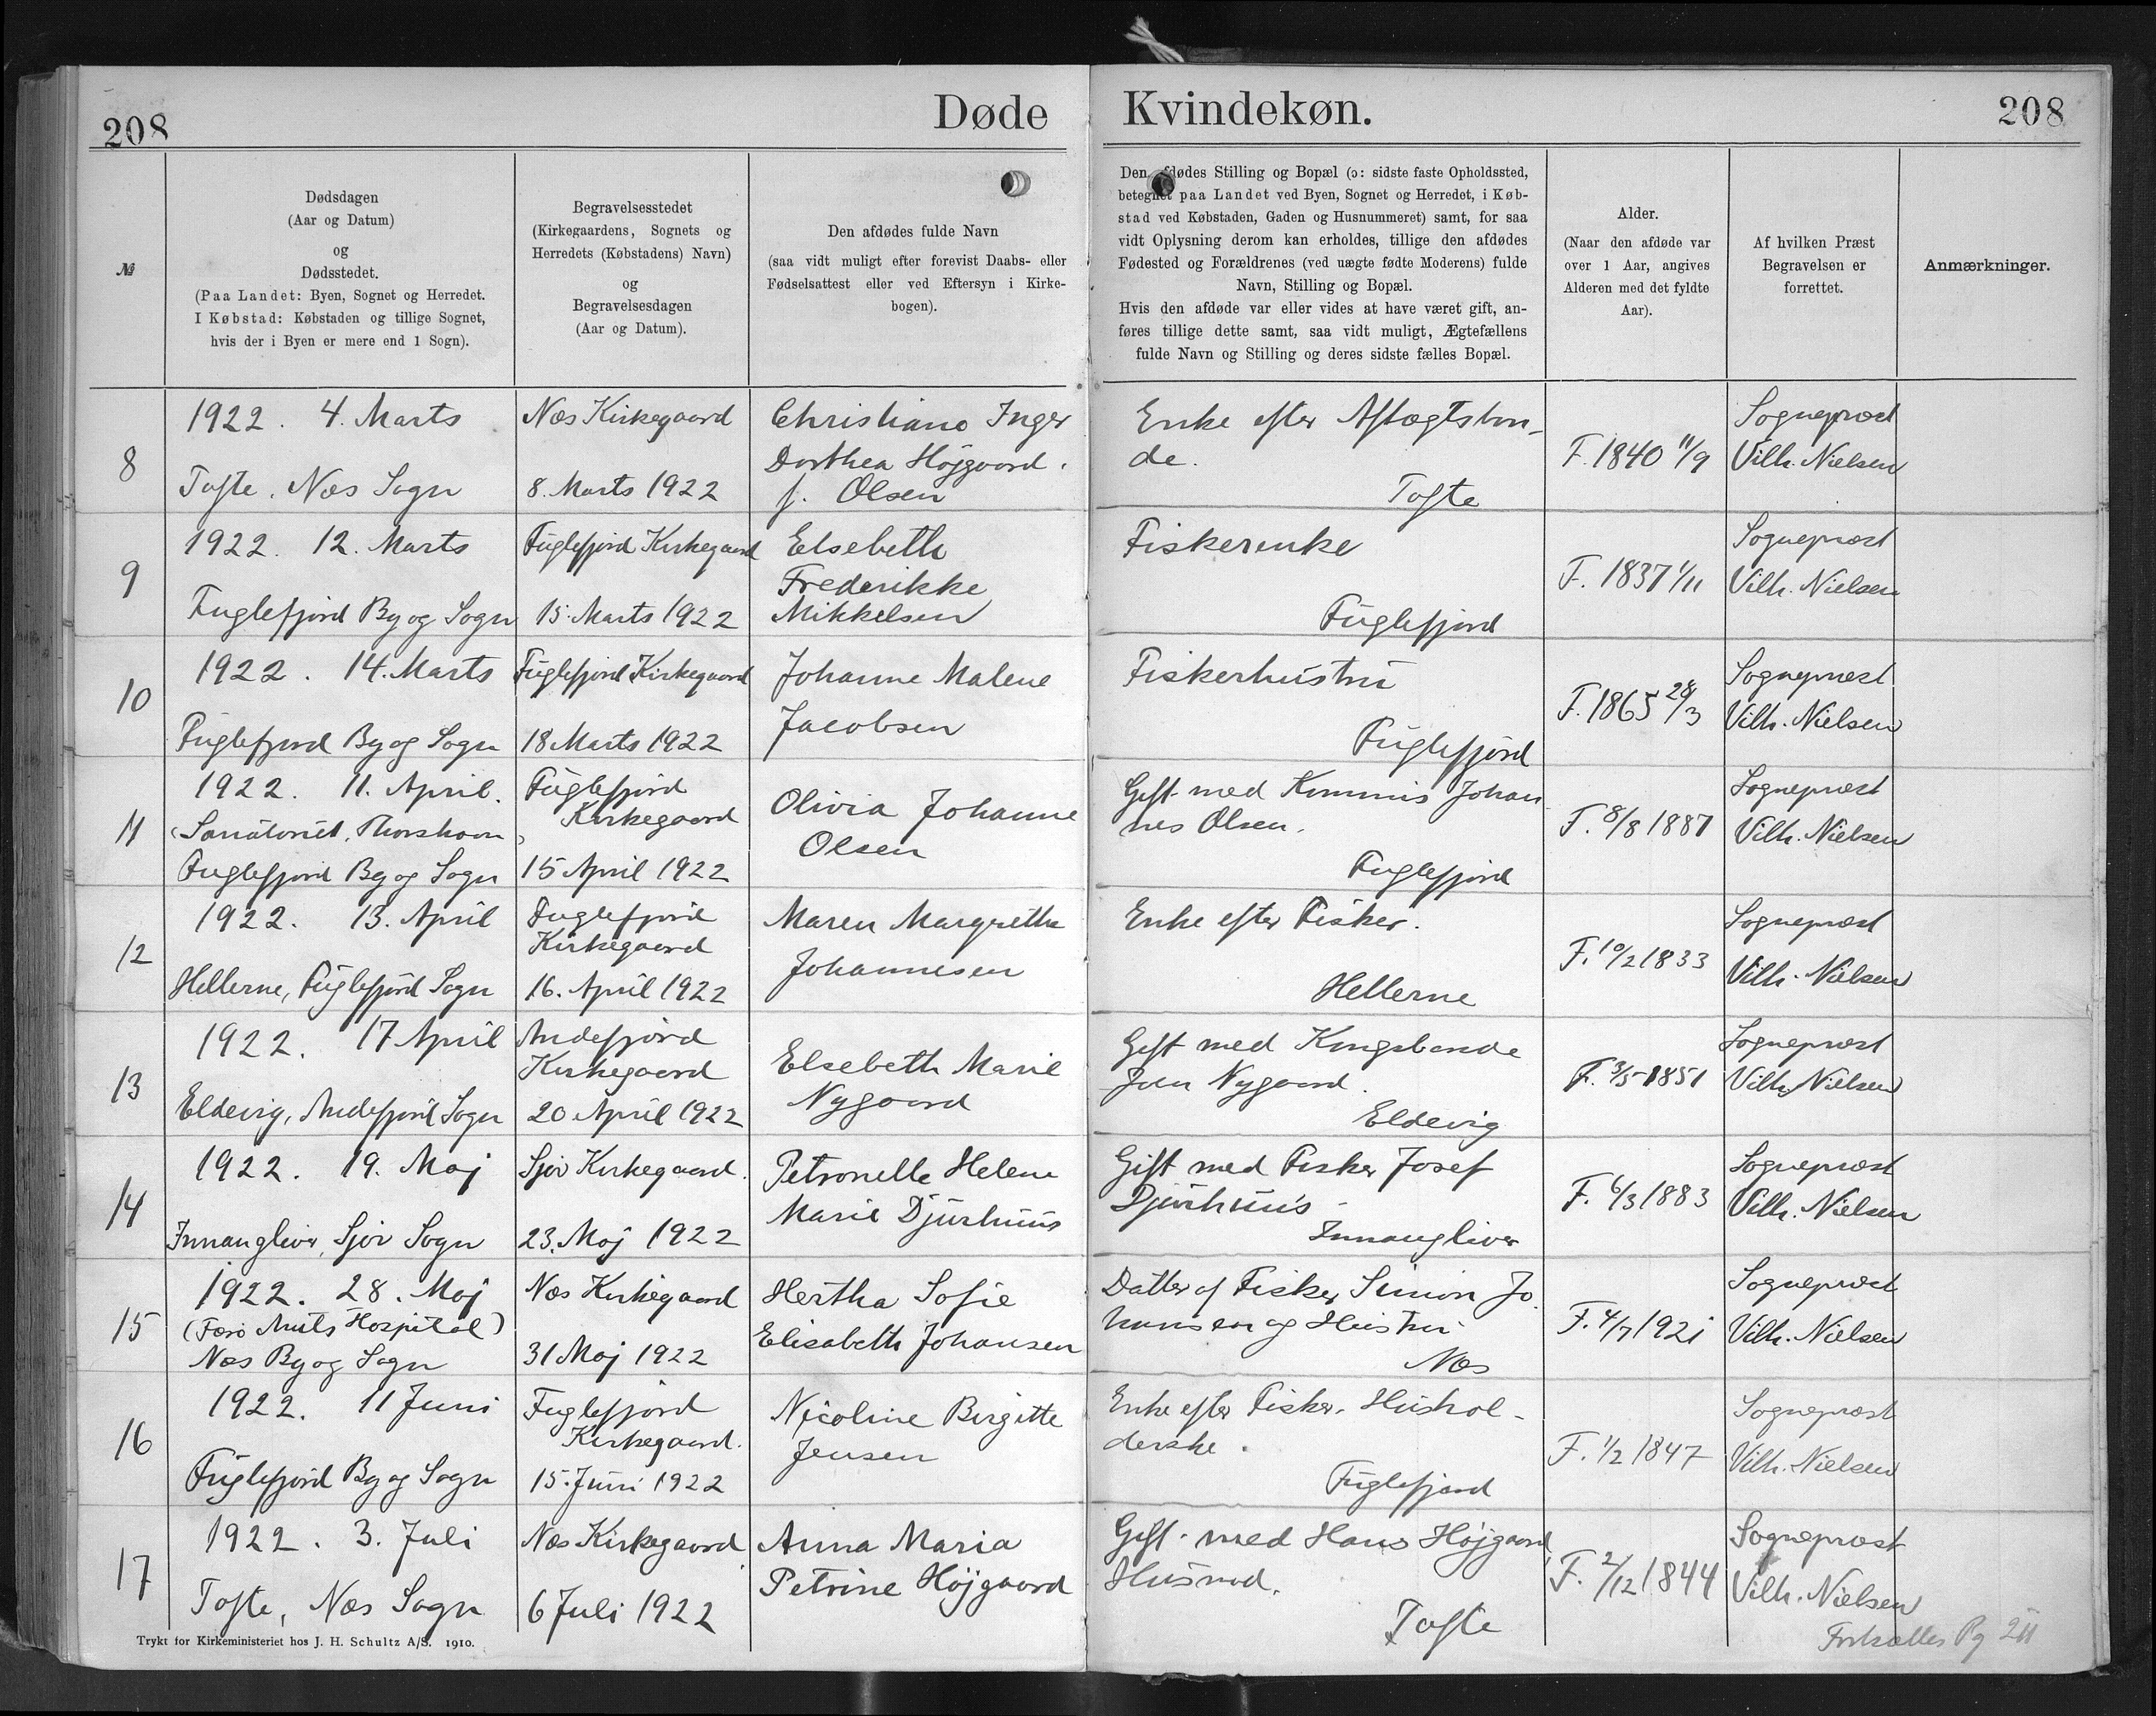 208
Døde
Kvindekøn.
208
№
Dødsdagen
(Aar og Datum)
og
Dødsstedet.
(Paa Landet: Byen, Sognet og Herredet.
I Købstad: Købstaden og tillige Sognet,
hvis der i Byen er mere end 1 Sogn).
Begravelsesstedet
(Kirkegaardens, Sognets og
Herredets (Købstadens) Navn)
og
Begravelsesdagen
(Aar og Datum).
Den afdødes fulde Navn
(saa vidt muligt efter forevist Daabs- eller
Fødselsattest eller ved Eftersyn i Kirke-
bogen).
Den afdødes Stilling og Bopæl (ɔ: sidste faste Opholdssted,
betegnet paa Landet ved Byen, Sognet og Herredet, i Køb-
stad ved Købstaden, Gaden og Husnummeret) samt, for saa
vidt Oplysning derom kan erholdes, tillige den afdødes
Fødested og Forældrenes (ved uægte fødte Moderens) fulde
Navn, Stilling og Bopæl.
Hvis den afdøde var eller vides at have været gift, an-
føres tillige dette samt, saa vidt muligt, Ægtefællens
fulde Navn og Stilling og deres sidste fælles Bopæl.
Alder.
(Naar den afdøde var
over 1 Aar, angives
Alderen med det fyldte
Aar).
Af hvilken Præst
Begravelsen er
forrettet.
Anmærkninger.
8
1922. 4. Marts
Tofte, Næs Sogn
Næs Kirkegaard
8. Marts 1922
Christiane Inger
Dorthea Højgaard.
f. Olsen
Enke efter Aftægtsbon-
de.
Tofte
F. 1840 11/9
Sognepræst
Vilh. Nielsen
9
1922. 12. Marts
Fuglefjord By og Sogn
Fuglefjord Kirkegaard
15. Marts 1922
Elsebeth
Frederikke
Mikkelsen
Fiskerenke
Fuglefjord
F. 1837 1/11
Sognepræst
Vilh. Nielsen
10
1922. 14. Marts
Fuglefjord By og Sogn
Fuglefjord Kirkegaard
18 Marts 1922
Johanne Malene
Jacobsen
Fiskerhustru
Fuglefjord
F. 1865 28/3
Sognepræst
Vilh. Nielsen
11
1922. 11. April.
(Sanatoriet, Thorshavn)
Fuglefjord By og Sogn
Fuglefjord
Kirkegaard
15 April 1922
Olivia Johanne
Olsen
Gift med Kommis Johan
nes Olsen.
Fuglefjord
F. 8/8 1887
Sognepræst
Vilh. Nielsen
12
1922. 13. April
Hellerne, Fuglefjord Sogn
Fuglefjord
Kirkegaard
16. April 1922
Maren Margretha
Johannesen
Enke efter Fisker.
Hellerne
F. 10/2 1833
Sognepræst
Vilh. Nielsen
13
1922. 17 April
Eldevig, Andefjord Sogn
Andefjord
Kirkegaard
20 April 1922
Elsebeth Marie
Nygaard
Gift med Kongsbonde
Joen Nygaard.
Eldevig
F. 3/5 1851
Sognepræst
Vilh. Nielsen
14
1922. 19. Maj
Innanglivur, Sjov Sogn
Sjov Kirkegaard.
23. Maj 1922
Petronelle Helene
Marie Djurhuus
Gift med Fisker Josef
Djurhuus
Innanglivur
F. 6/3 1883
Sognepræst
Vilh. Nielsen
15
1922. 28. Maj
(Færø Amts Hospital)
Næs By og Sogn
Næs Kirkegaard
31 Maj 1922
Hertha Sofie
Elisabeth Johansen
Datter af Fisker Simon Jo
hansen og Hustru
Næs
F. 4/7 1921
Sognepræst
Vilh. Nielsen
16
1922. 11 Juni
Fuglefjord By og Sogn
Fuglefjord
Kirkegaard.
15. Juni 1922
Nicoline Birgitte
Jensen
Enke efter Fisker. Hushol-
derske.
Fuglefjord
F. 1/2 1847
Sognepræst
Vilh. Nielsen
17
1922. 3. Juli
Tofte, Næs Sogn
Næs Kirkegaard
6 Juli 1922
Anna Maria
Petrine Højgaard
Gift med Hans Højgaard
Husmd.
Tofte
F. 2/12 1844
Sognepræst
Vilh. Nielsen
Fortsættes Pg 211
Trykt for Kirkeministeriet hos J. H. Schultz A/S. 1910.